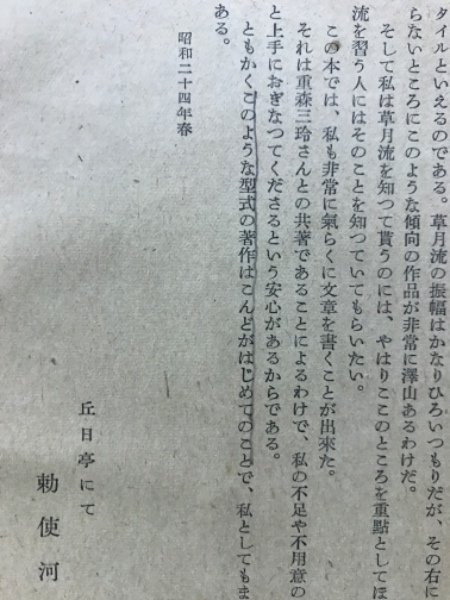 タイルといえるのである。草月流の振幅はかなりひろいつもりだが、その右に
らないところにこのような傾向の作品が非常に澤山あるわけだ。
そして私は草月流を知つて貰うのには、やはりここのところを重點としてほ
流を習う人にはそのことを知つていてもらいたい。
この本では、私も非常に氣らくに文章を書くことが出來た。
それは重森三玲さんとの共著であることによるわけで、私の不足や不用意の
と上手におぎなつてくださるという安心があるからである。
ともかくこのような型式の著作はこんどがはじめてのことで、私としてもま
ある。
昭和二十四年春
丘日亭にて
勅使河